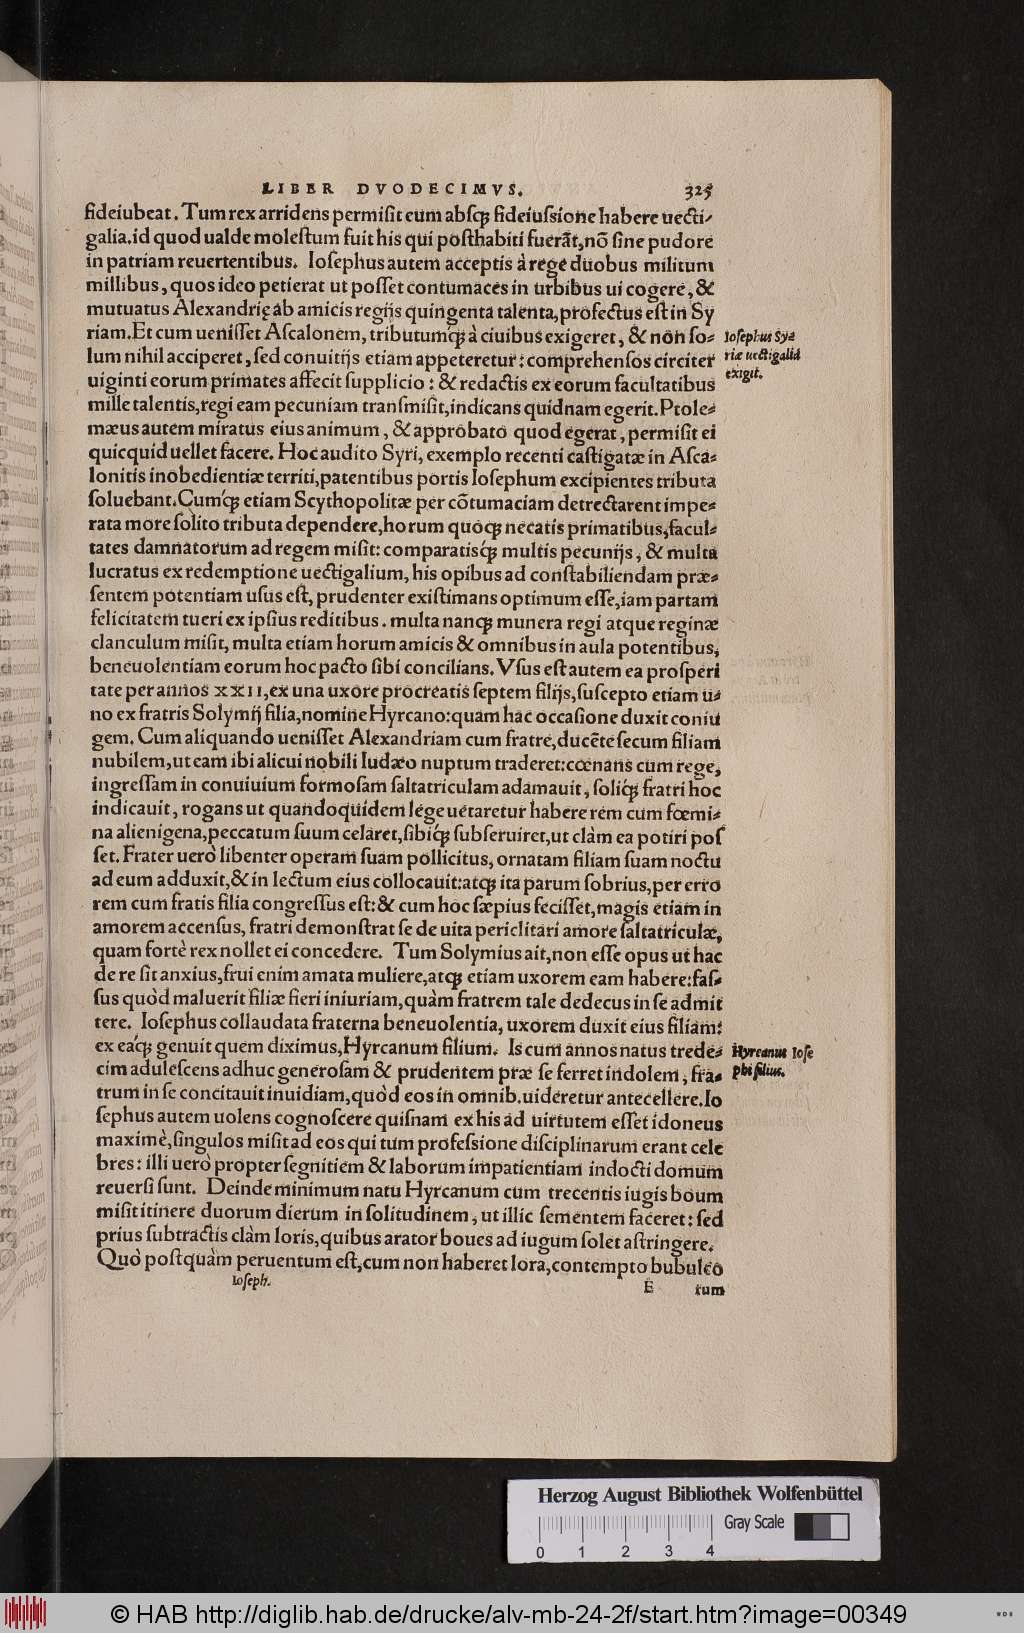 LIBER DVODECIMVS. 325
fideiubeat. Tum rex arridens permiſit eum abſq; fideiuſsione habere uecti-
galia. id quod ualde moleſtum fuit his qui poſthabiti fuerãt, nõ ſine pudore
in patriam reuertentibus. Ioſephus autem acceptis à rege duobus militum
millibus, quos ideo petierat ut poſſet contumaces in urbibus ui cogere, &
mutuatus Alexandrię ab amicis regijs quingenta talenta, profectus eſt in Sy
riam. Et cum ueniſſet Aſcalonem, tributumq́; à ciuibus exigeret, & non ſo-
lum nihil acciperet, ſed conuitijs etiam appeteretur: comprehenſos circiter
uiginti eorum primates affecit ſupplicio: & redactis ex eorum facultatibus
mille talentis, regi eam pecuniam tranſmiſit, indicans quidnam egerit. Ptole-
mæus autem miratus eius animum, & approbato quod egerat, permiſit ei
quicquid uellet facere. Hoc audito Syri, exemplo recenti caſtigatæ in Aſca-
lonitis inobedientiæ territi, patentibus portis Ioſephum excipientes tributa
ſoluebant. Cumq́; etiam Scythopolitæ per cõtumaciam detrectarent impe-
rata more ſolito tributa dependere, horum quoq; necatis primatibus, facul-
tates damnatorum ad regem miſit: comparatisq́; multis pecunijs, & multa
lucratus ex redemptione uectigalium, his opibus ad conſtabiliendam præ-
ſentem potentiam uſus eſt, prudenter exiſtimans optimum eſſe, iam partam
felicitatem tueri ex ipſius reditibus. multa nanq; munera regi atque reginæ
clanculum miſit, multa etiam horum amicis & omnibus in aula potentibus,
beneuolentiam eorum hoc pacto ſibi concilians. Vſus eſt autem ea proſperi
tate per annos XXII, ex una uxore procreatis ſeptem filijs, ſuſcepto etiam u-
no ex fratris Solymij filia, nomine Hyrcano: quam hac occaſione duxit coniu
gem. Cum aliquando ueniſſet Alexandriam cum fratre, ducẽte ſecum filiam
nubilem, ut eam ibi alicui nobili Iudæo nuptum traderet: cœnans cum rege,
ingreſſam in conuiuium formoſam ſaltatriculam adamauit, ſoliq́; fratri hoc
indicauit, rogans ut quandoquidem lege uetaretur habere rem cum fœmi-
na alienigena, peccatum ſuum celaret, ſibiq́; ſubſeruiret, ut clàm ea potiri poſ
ſet. Frater uerò libenter operam ſuam pollicitus, ornatam filiam ſuam noctu
ad eum adduxit, & in lectum eius collocauit: atq; ita parum ſobrius, per erro
rem cum fratis filia congreſſus eſt: & cum hoc ſæpius feciſſet, magis etiam in
amorem accenſus, fratri demonſtrat ſe de uita periclitari amore ſaltatriculæ,
quam fortè rex nollet ei concedere. Tum Solymius ait, non eſſe opus ut hac
de re ſit anxius, frui enim amata muliere, atq; etiam uxorem eam habere: faſ-
ſus quòd maluerit filiæ fieri iniuriam, quàm fratrem tale dedecus in ſe admit
tere. Ioſephus collaudata fraterna beneuolentia, uxorem duxit eius filiam:
ex eaq́; genuit quem diximus, Hyrcanum filium. Is cum annos natus trede-
cim aduleſcens adhuc generoſam & prudentem præ ſe ferret indolem, fra-
trum in ſe concitauit inuidiam, quòd eos in omnib. uideretur antecellere. Io
ſephus autem uolens cognoſcere quiſnam ex his ad uirtutem eſſet idoneus
maximè, ſingulos miſit ad eos qui tum profeſsione diſciplinarum erant cele
bres: illi uerò propter ſegnitiem & laborum impatientiam indocti domum
reuerſi ſunt. Deinde minimum natu Hyrcanum cum trecentis iugis boum
miſit itinere duorum dierum in ſolitudinem, ut illic ſementem faceret: ſed
prius ſubtractis clàm loris, quibus arator boues ad iugum ſolet aſtringere.
Quò poſtquàm peruentum eſt, cum non haberet lora, contempto bubulco
Ioſeph. E rum
Ioſephus Sy-
riæ uectigalia
exigit.
Hyrcanus Ioſe
phi filius.
Herzog August Bibliothek Wolfenbüttel
Gray Scale
0 1 2 3 4
© HAB http://diglib.hab.de/drucke/alv-mb-24-2f/start.htm?image=00349